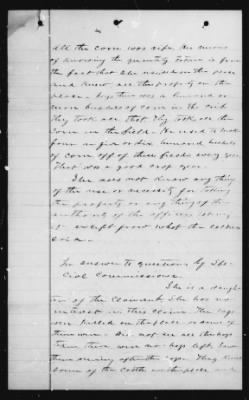 all the corn was ripe. Her means
of knowing the quantity taken is from
the fact that she resided on the place
and knew all the property on the
place - he there was a hundred or
more bushels of corn in the crib
They took all that. They took all the
corn in the field. He used to make
four or five or six hundred bushels
of corn off of these fields every year.
This was a good crop year.
She does not know any thing
of the use or necessity for taking
the property or any thing of the
authority of the officers taking
it except from what the soldiers
said.
In answer to questions by Spe
cial Commissioner.
She is a daugh
ter of the Claimant. She has no
interest in this claim. The hogs
were killed on the place or some of
them were. Did not see all the hogs
there were no hogs left. Saw
them running after the hogs. They killed
some of the cattle on the place and